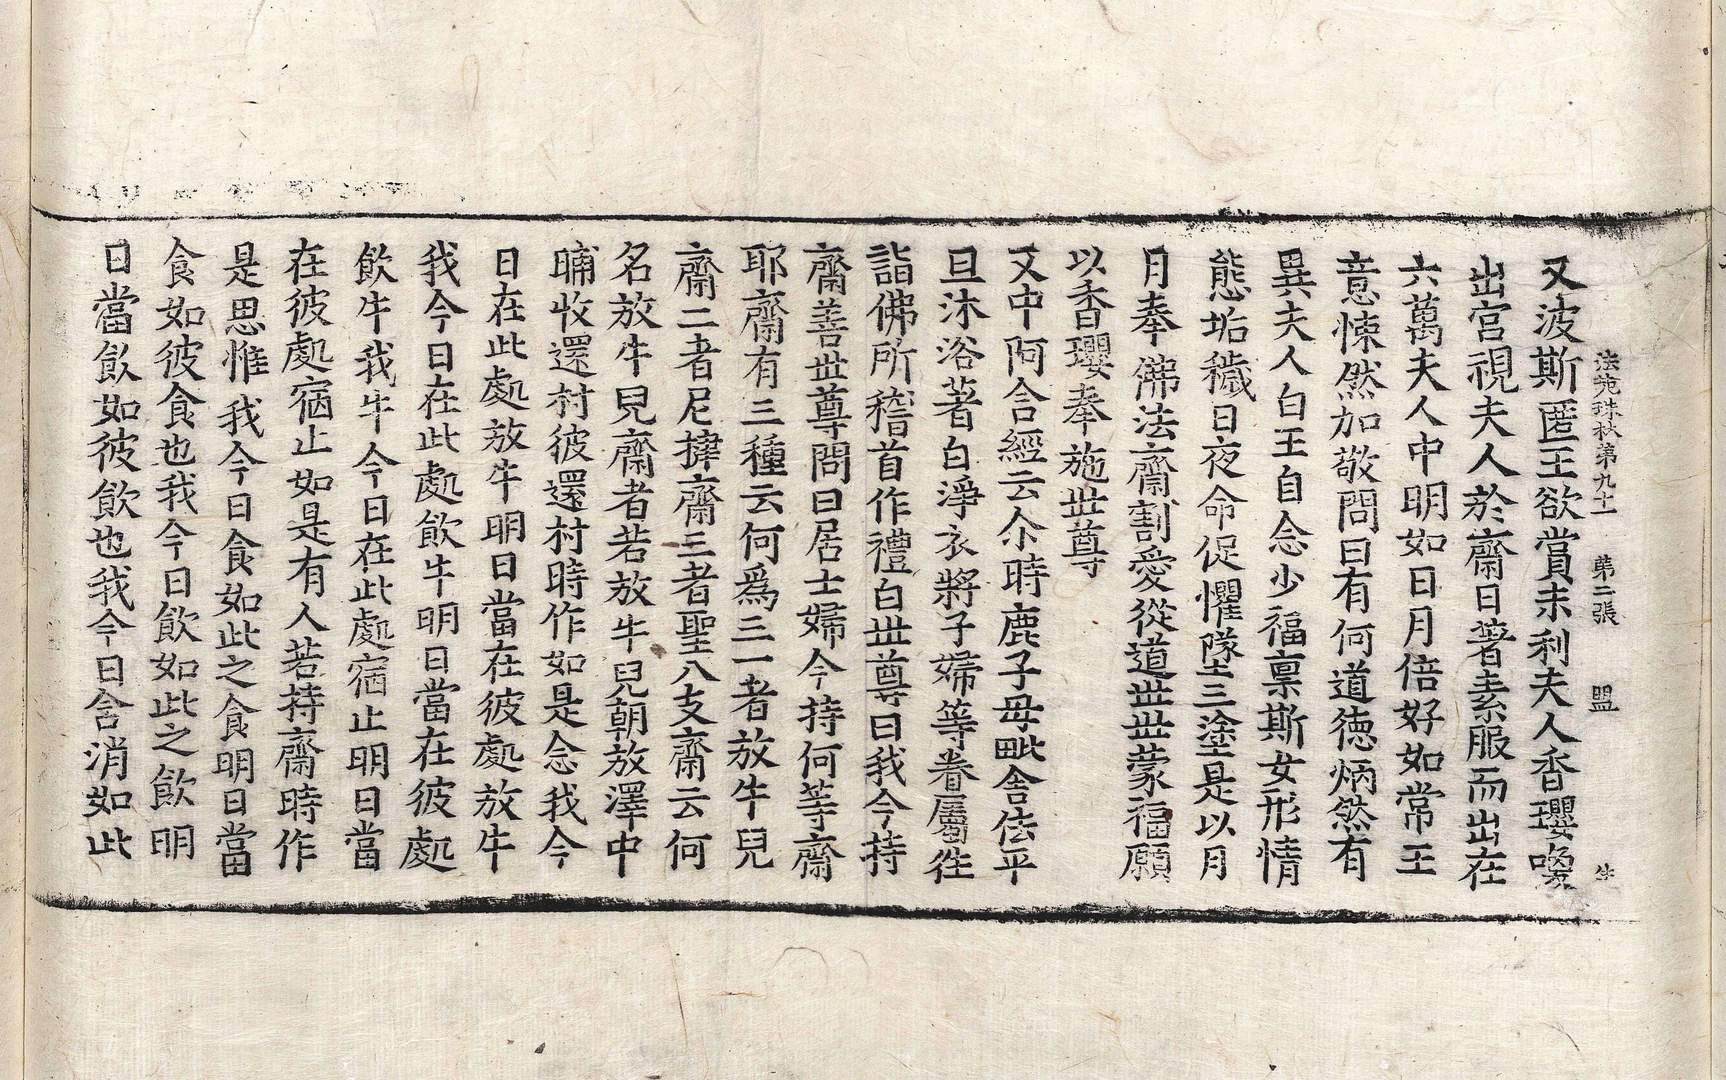 法苑珠林第九十一 第二張 盟
又波斯匿王欲賞末利夫人香瓔喚
出宮視夫人於齋日著素服而出在
六萬夫人中明如日月倍好如常王
意悚然加敬問曰有何道德炳然有
異夫人白王自念少福稟斯女形情
態垢穢日夜命促懼墜三塗是以月
月奉佛法齋割愛從道世世蒙福願
以香瓔奉施世尊
又中阿含經云尒時鹿子母毗舍佉平
旦沐浴著白淨衣將子婦等眷屬往
詣佛所稽首作禮白世尊曰我今持
齋善世尊問曰居士婦今持何等齋
耶齋有三種云何為三一者放牛兒
齋二者尼揵齋三者聖八支齋云何
名放牛兒齋者若放牛兒朝放澤中
晡收還村彼還村時作如是念我今
日在此處放牛明日當在彼處放牛
我今日在此處飲牛明日當在彼處
飲牛我牛今日在此處宿止明日當
在彼處宿止如是有人若持齋時作
是思惟我今日食如此之食明日當
食如彼食也我今日飲如此之飲明
日當飲如彼飲也我今日含消如此